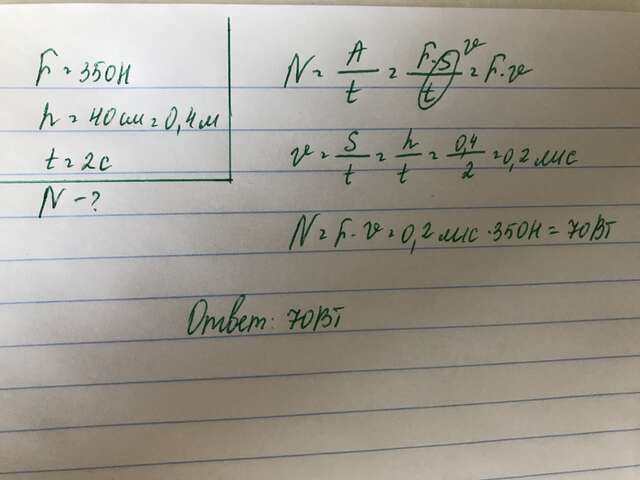 F = 350Н
h = 40 см = 0,4 м
t = 2с
N - ?
N = A/t = F·S/t = F·v
v
v = S/t = h/t = 0,4/2 = 0,2 м/с
N = F·v = 0,2 м/с · 350Н = 70Вт
Ответ: 70Вт